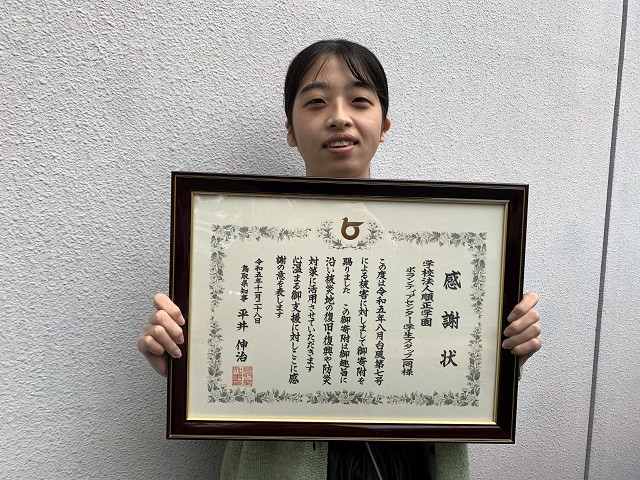 感謝状
学校法人順正学園
ボランティアセンター学生スタッフ一同様
この度は令和五年八月台風第七号
による被害に対しまして御寄附を
賜りました この御寄附は御趣旨に
沿い被災地の復旧・復興や防災
対策に活用させていただきます
心温まる御支援に対しここに感
謝の意を表します
令和五年十二月二十八日
鳥取県知事 平井伸治